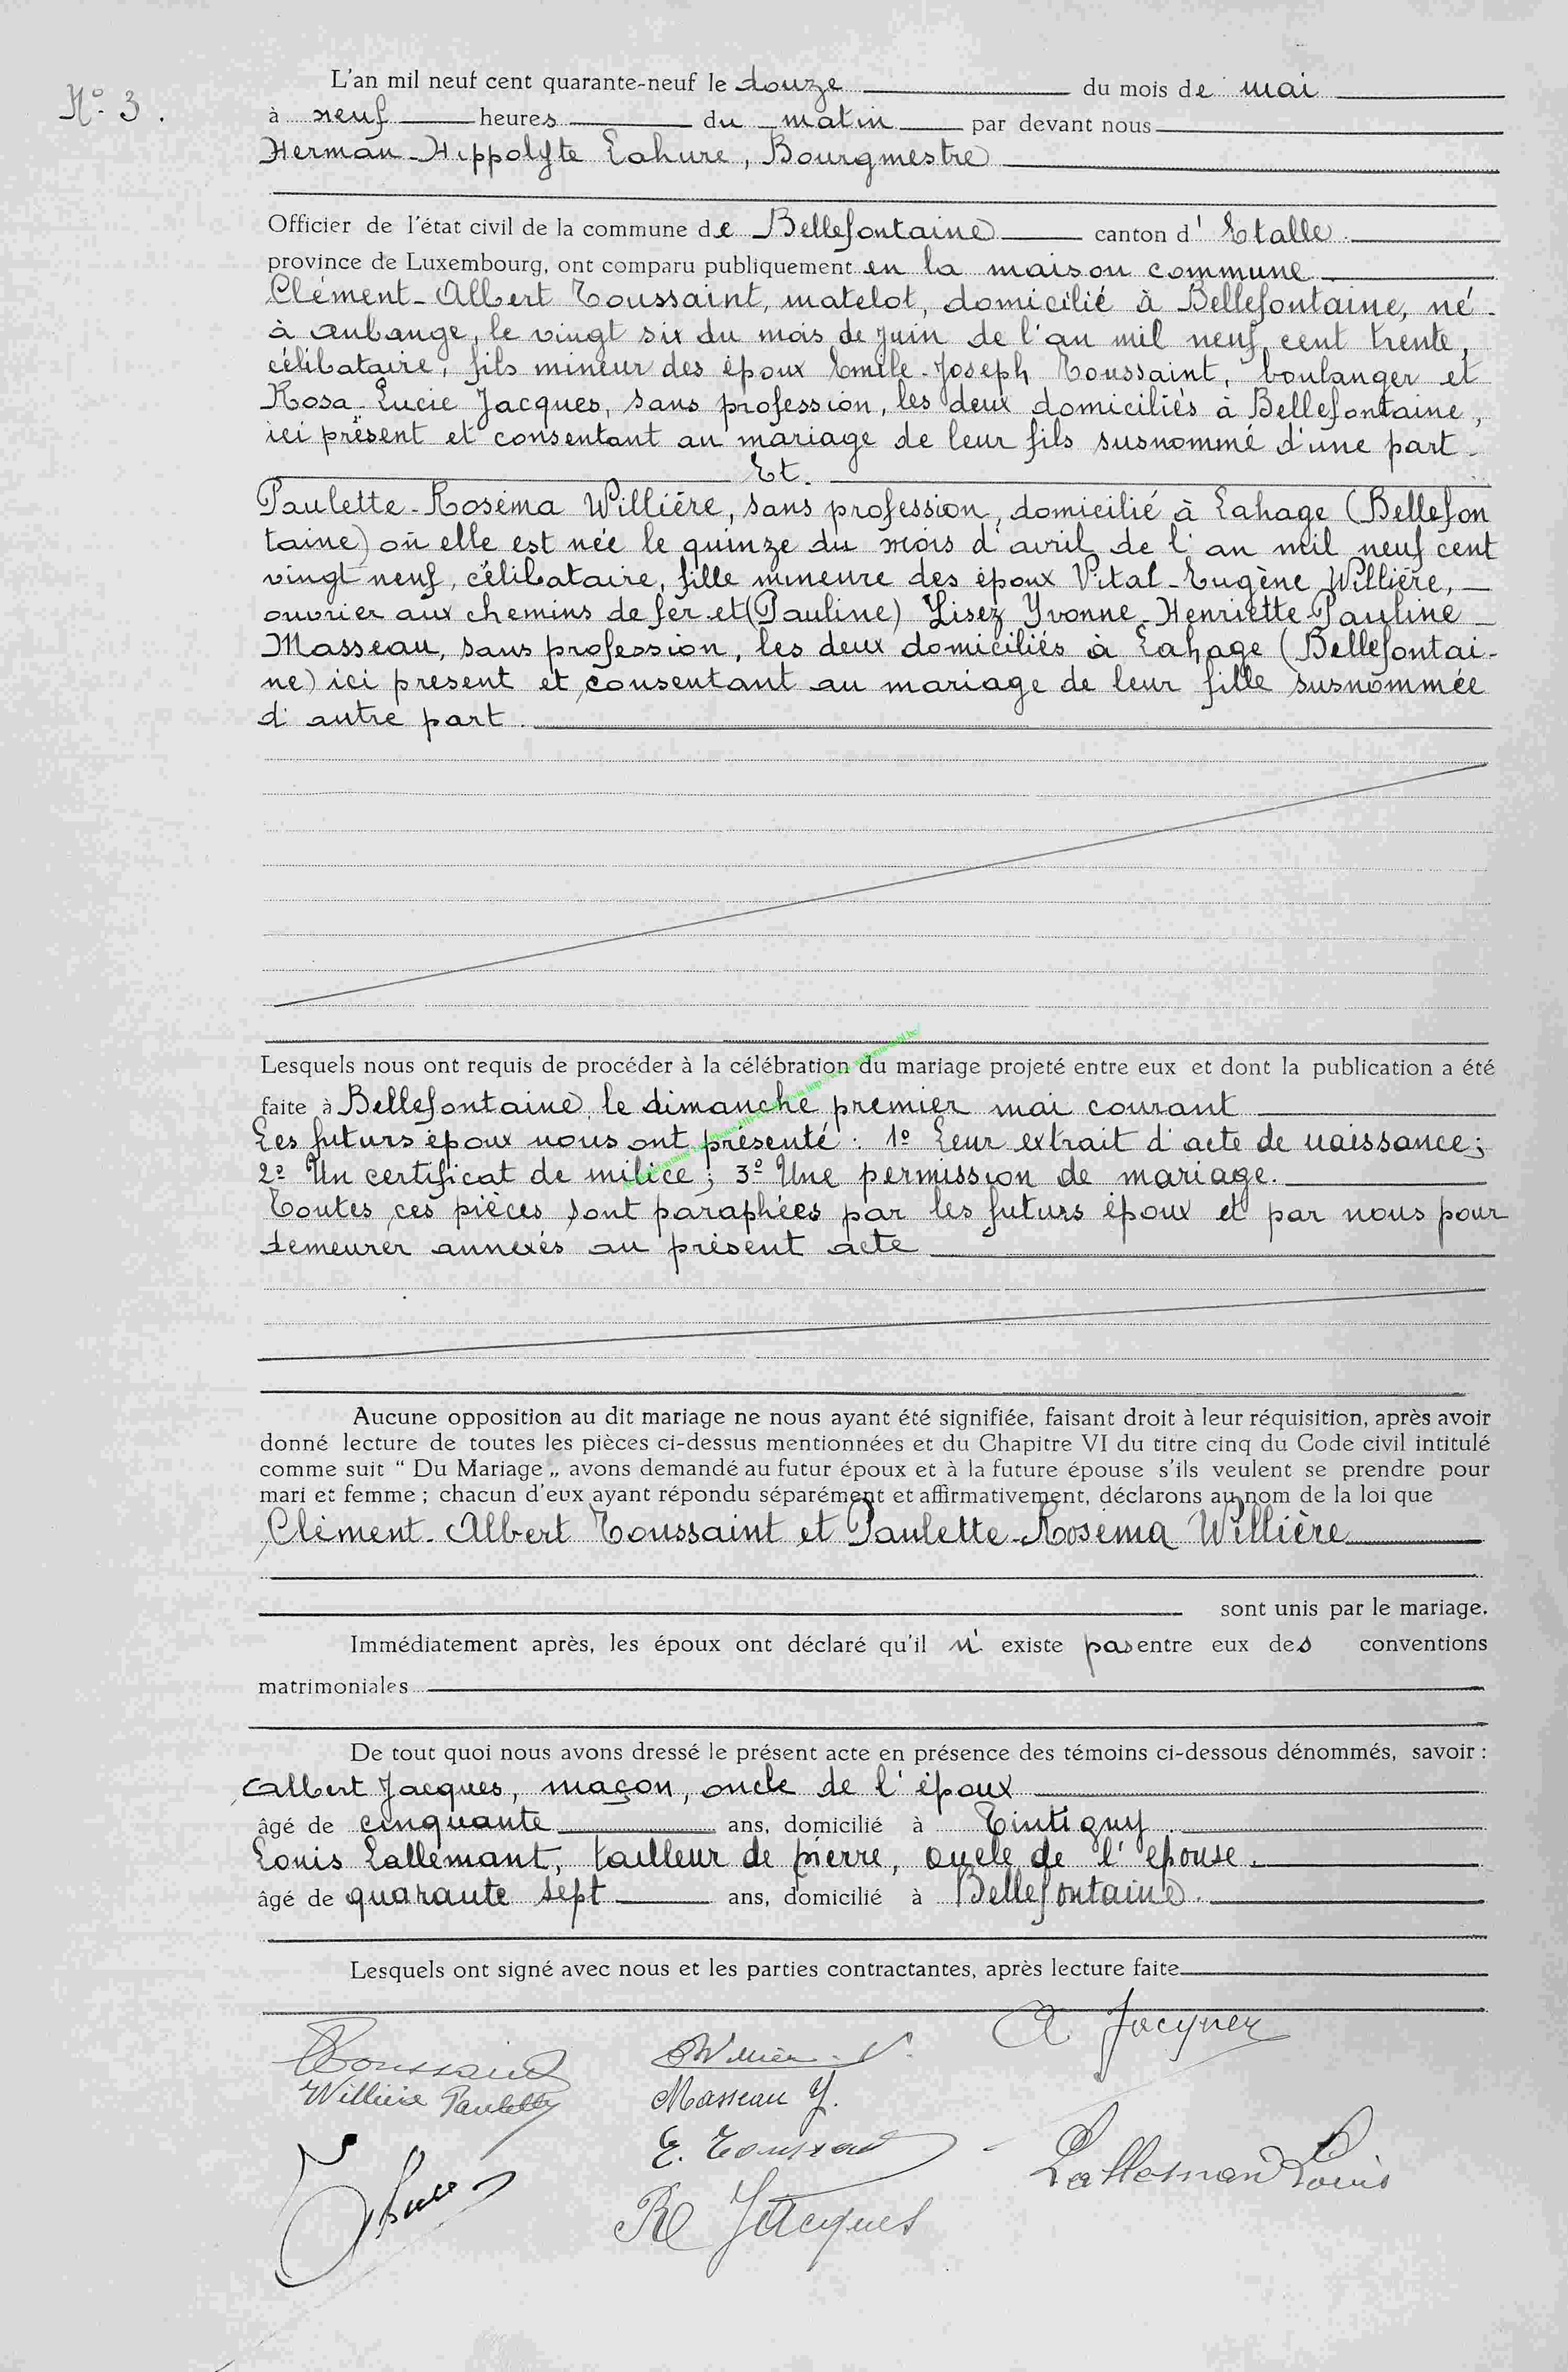 N° 3.
L'an mil neuf cent quarante-neuf le douze du mois de mai
à neuf heures du matin par devant nous
Herman-Hippolyte Lahure, Bourgmestre
Officier de l'état civil de la commune de Bellefontaine canton d' Etalle
province de Luxembourg, ont comparu publiquement en la maison commune
Clément-Albert Toussaint, matelot, domicilié à Bellefontaine, né
à Aubange, le vingt six du mois de Juin de l'an mil neuf cent trente,
célibataire, fils mineur des époux Emile-Joseph Toussaint, boulanger et
Rosa-Lucie Jacques, sans profession, les deux domiciliés à Bellefontaine,
ici présent et consentant au mariage de leur fils susnommé d'une part.
Et.
Paulette-Roséma Willière, sans profession, domicilié à Lahage (Bellefon
taine) où elle est née le quinze du mois d'avril de l'an mil neuf cent
vingt neuf, célibataire, fille mineure des époux Vital-Eugène Willière,
ouvrier aux chemins de fer et (Pauline) Lisez Yvonne-Henriette-Pauline
Masseau, sans profession, les deux domiciliés à Lahage (Bellefontai-
ne) ici present et consentant au mariage de leur fille susnommée
d'autre part.
Lesquels nous ont requis de procéder à la célébration du mariage projeté entre eux et dont la publication a été
faite à Bellefontaine, le dimanche premier mai courant
Les futurs époux nous ont présenté : 1° Leur extrait d'acte de naissance ;
2° Un certificat de milice ; 3° Une permission de mariage.
Toutes ces pièces sont paraphées par les futurs époux et par nous pour
demeurer annexés au présent acte
Aucune opposition au dit mariage ne nous ayant été signifiée, faisant droit à leur réquisition, après avoir
donné lecture de toutes les pièces ci-dessus mentionnées et du Chapitre VI du titre cinq du Code civil intitulé
comme suit “ Du Mariage „ avons demandé au futur époux et à la future épouse s'ils veulent se prendre pour
mari et femme ; chacun d'eux ayant répondu séparément et affirmativement, déclarons au nom de la loi que
Clément-Albert Toussaint et Paulette-Roséma Willière
sont unis par le mariage.
Immédiatement après, les époux ont déclaré qu'il n' existe pas entre eux des conventions
matrimoniales
De tout quoi nous avons dressé le présent acte en présence des témoins ci-dessous dénommés, savoir :
Albert Jacques, maçon, oncle de l'époux
âgé de cinquante ans, domicilié à Tintigny
Louis Lallemant, tailleur de pierre, oncle de l'épouse.
âgé de quarante sept ans, domicilié à Bellefontaine.
Lesquels ont signé avec nous et les parties contractantes, après lecture faite
A Jacques
Toussaint
Willière V.
Willière Paulette
Masseau Y.
E. Toussaint
Lallemand Louis
R Jacques